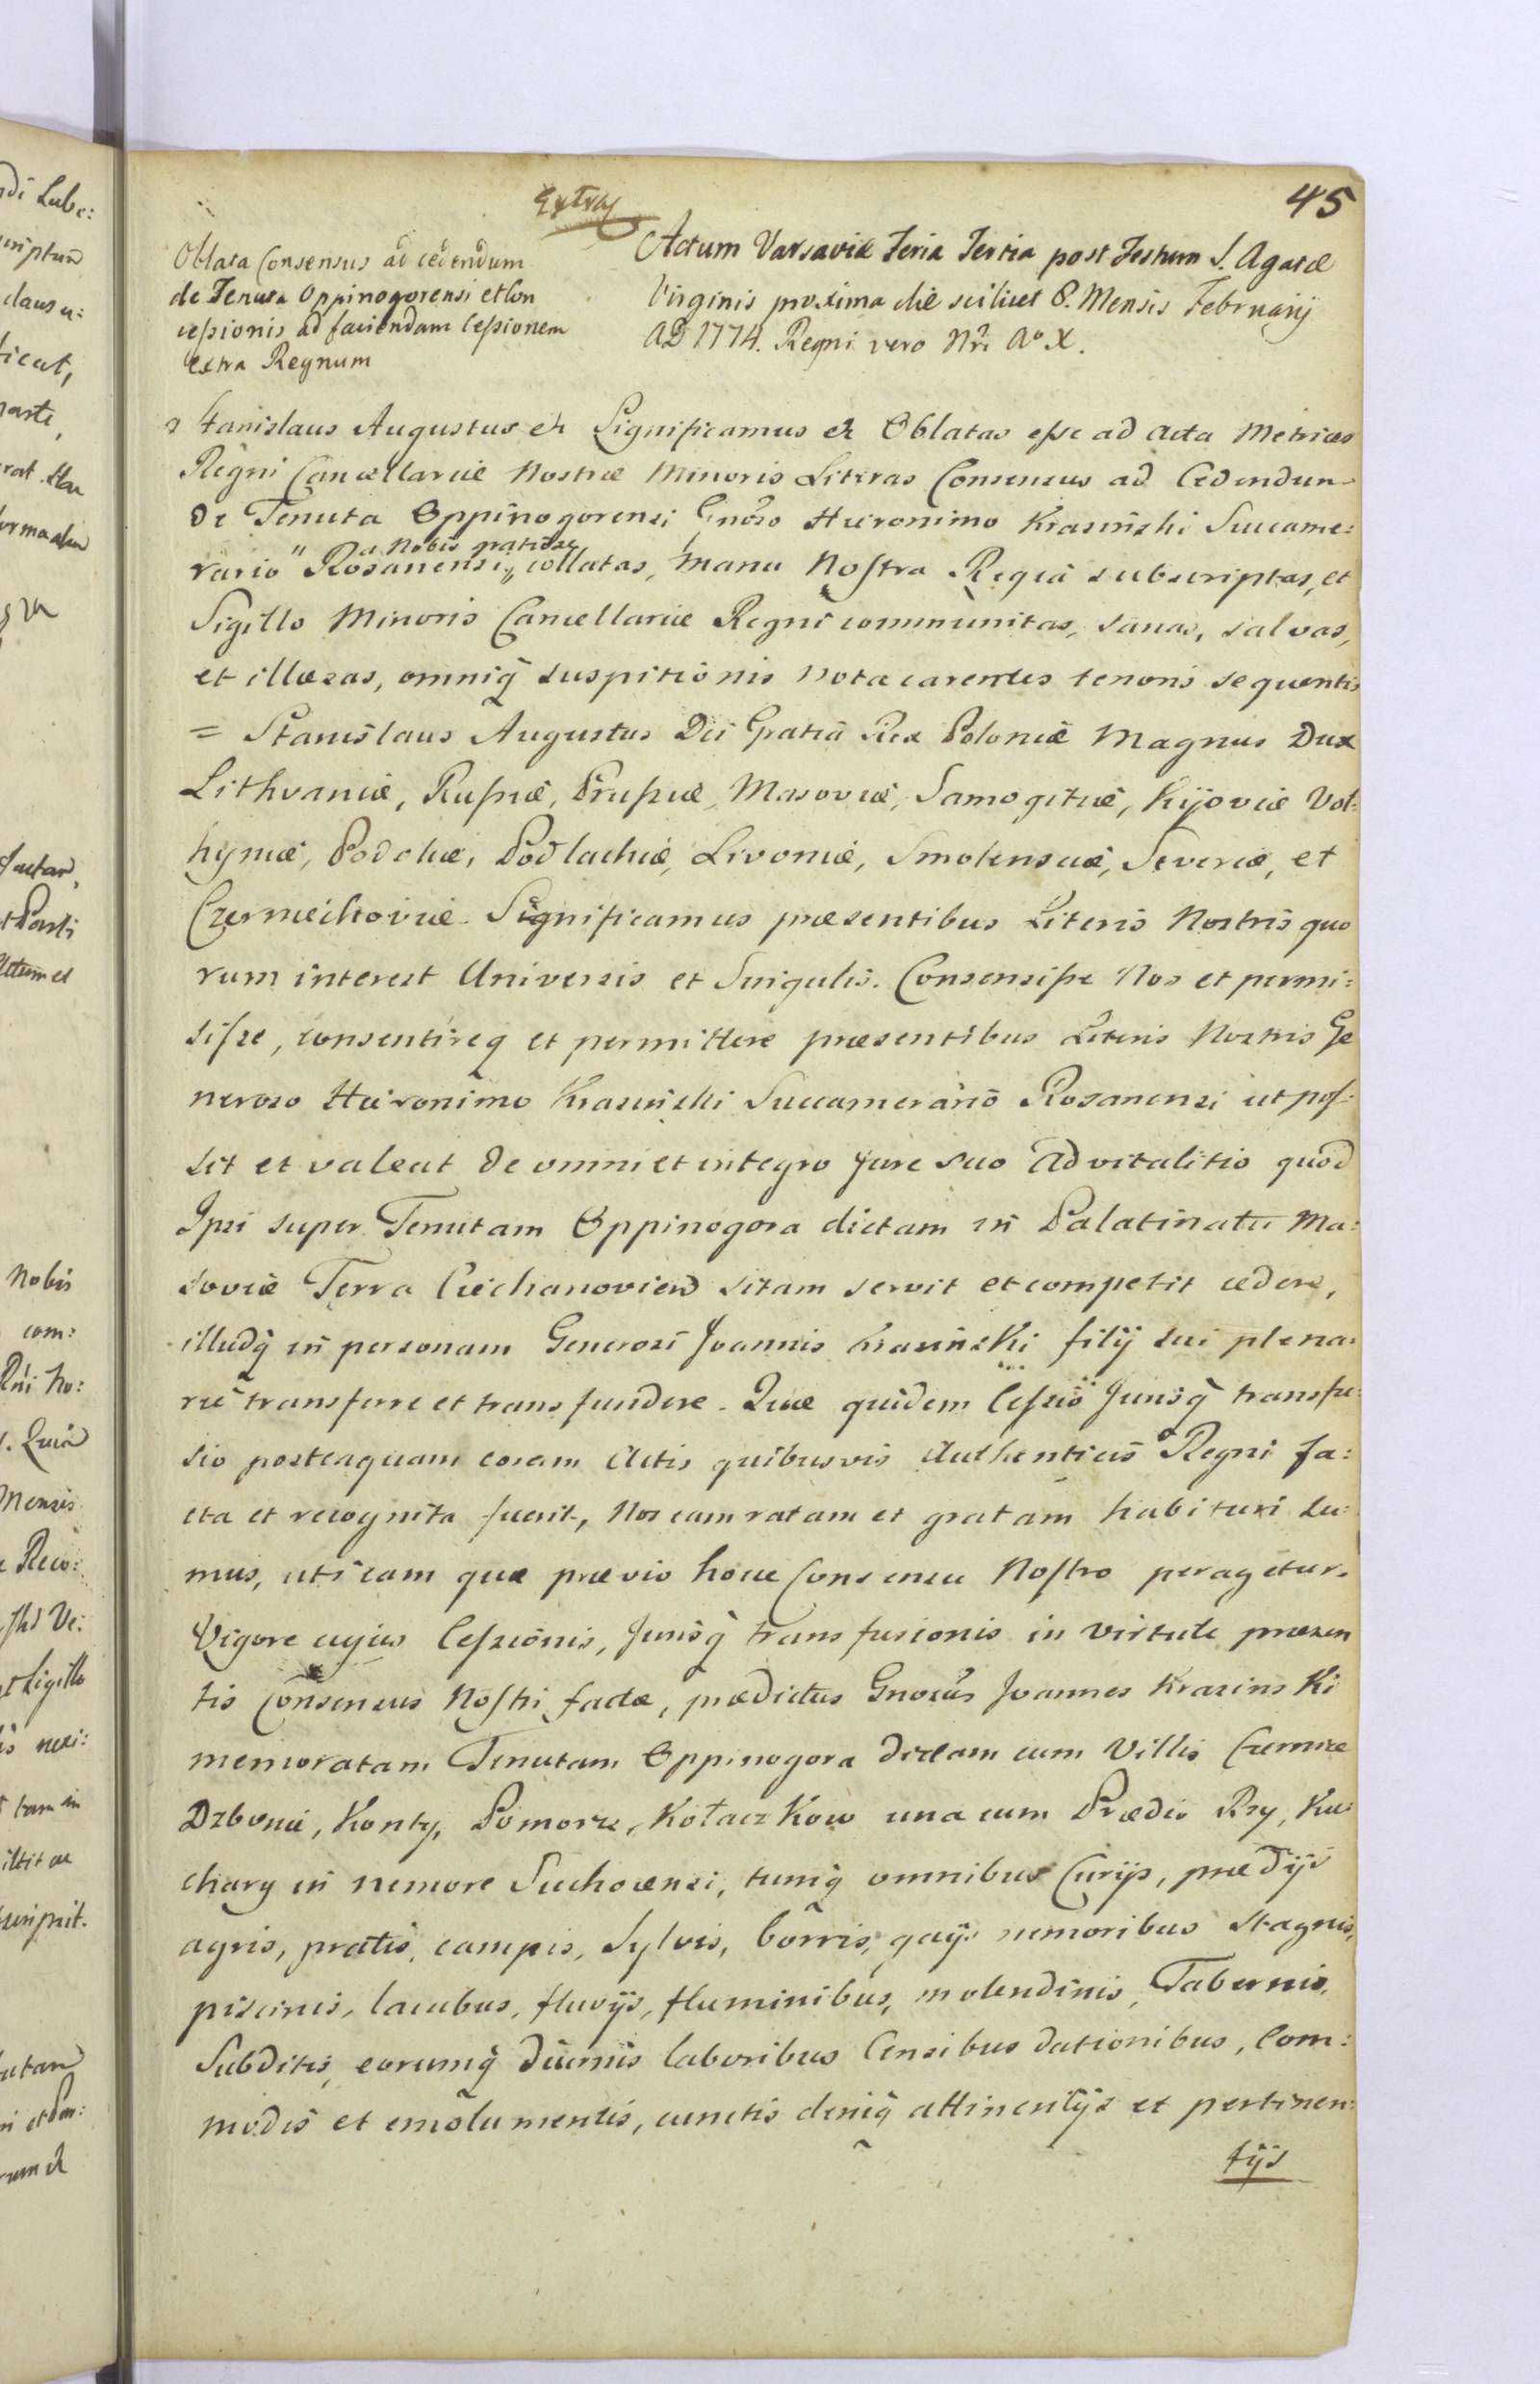 45
Extrad
Oblata Consensus ad cedendum
de Tenuta Oppinogorensi et Con
cessionis ad faciendam Cessionem
extra Regnum
Actum Varsaviæ Feria Tertia post Festum S. Agatæ
Virginis proxima die scilicet 8. Mensis Februarij
AD 1774. Regni vero Nri Ao X.
Stanislaus Augustus et Significamus et Oblatas esse ad Acta Metrices
Regni Cancellariæ Nostræ Minoris Literas Consensus ad Cedendum
de Tenuta Oppinogorensi Gnoso Hieronimo Krasinski Succame:
a Nobis gratiose
rario " Rosanensi " collatas, Manu Nostra Regia subscriptas, et
Sigillo Minoris Cancellariæ Regni communitas, sanas, salvas,
et illæsas, omniq suspitionis nota carentes tenoris sequentis
= Stanislaus Augustus Dei Gratiâ Rex Poloniæ Magnus Dux
Lithvaniæ, Russiæ, Prussiæ, Masoviæ, Samogitiæ, Kijoviæ Vol:
hyniæ, Podoliæ, Podlachiæ, Livoniæ, Smolensciæ, Severiæ, et
Czerniechoviæ. Significamus præsentibus Literis Nostris quo
rum interest Universis et Singulis. Consensisse Nos et permi:
sisse, consentireq et permittere præsentibus Literis Nostris Ge
neroso Hieronimo Krasinski Succamerario Rosanensi ut pos:
sit et valeat de omni et integro Jure suo Advitalitio quod
Ipsi super Tenutam Oppinogora dictam in Palatinatu Ma:
soviæ Terra Ciechanovien sitam servit et competit cedere,
illudq in personam Generosi Joannis Krasinski filij sui plena:
rie transferre et transfundere. Quæ quidem Cessio Jurisq transfu:
sio posteaquam coram Actis quibusvis Authenticis Regni fa:
cta et recognita fuerit, Nos eam ratam et gratam habituri su:
mus, uti eam quæ prævio hocce Consensu Nostro peragetur.
Vigore cujus Cessionis, Jurisq transfusionis in virtute præsen
tis Consensus Nostri factæ, prædictus Gnosus Joannes Krasinski
memoratam Tenutam Oppinogora dictam cum Villis Czernice
Dzbonie, Konty, Pomorze, Kołaczkow una cum Prædio Rzy, Ku:
chary in nemore Suchocensi, tumq omnibus Curijs, prædijs
agris, pratis, campis, Sylvis, borris, gaijs nemoribus stagnis,
piscinis, lacubus, fluvijs, fluminibus, molendinis, Tabernis,
Subditis, eorumq diurnis laboribus Censibus dationibus, Com:
modis et emolumentis, cunctis deniq attinentijs et pertinen:
tijs